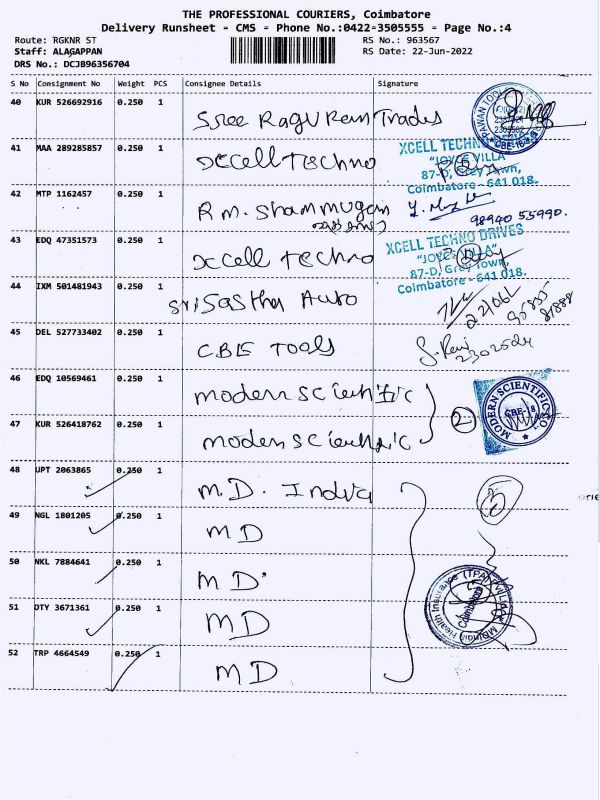 THE PROFESSIONAL COURIERS, Coimbatore
Delivery Runsheet - CMS - Phone No.:0422-3505555 - Page No.:4
Route: RGKNR ST
RS No.: 963567
Staff: ALAGAPPAN
RS Date: 22-Jun-2022
DRS No.: DCJB96356704
S No Consignment No Weight PCS Consignee Details Signature
40 KUR 526692916 0.250 1 Sree Ragu Ram Trades
PAWAN TOOL
41 MAA 289285857 0.250 1 Xcell Techno
XCELL TECHNO
"JOYCE VILLA"
87-D, Grey Town,
Coimbatore - 641 018.
42 MTP 1162457 0.250 1 R m. Shanmugam
98940 55990.
43 EDQ 47351573 0.250 1 Xcell Techno
XCELL TECHNO DRIVES
"JOYCE VILLA"
87-D, Grey Town,
Coimbatore - 641 018.
44 IXM 501481943 0.250 1 Sri Sastha Auto
22/06/
45 DEL 527733402 0.250 1 CBE Tools
46 EDQ 10569461 0.250 1 modern scientific
2
MODERN SCIENTIFIC CO.
CBE-18
47 KUR 526418762 0.250 1 modern scientific
48 UPT 2063865 0.250 1 M.D. India
5
49 NGL 1801205 0.250 1 MD
50 NKL 7884641 0.250 1 MD
51 OTY 3671361 0.250 1 MD
MDIndia Health Insurance (TPA)
Coimbatore
52 TRP 4664549 0.250 1 MD